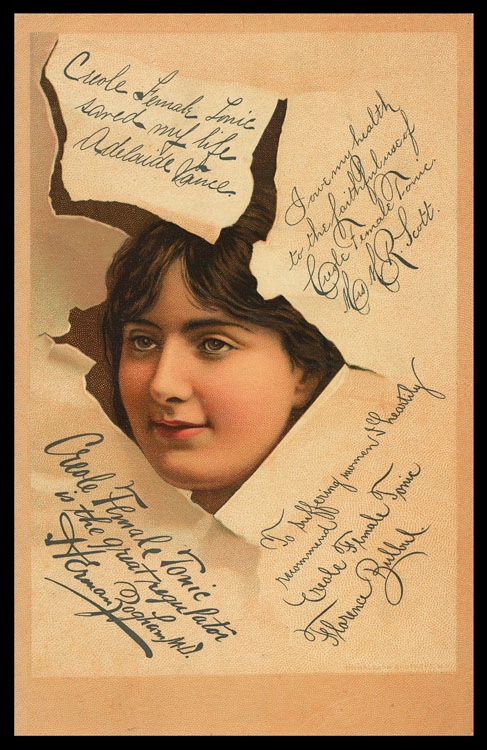 Creole Female Tonic
saved my life
Adelaide Vance.
I owe my health
to the faithful use of
Creole Female Tonic.
Mrs R. Scott.
Creole Female Tonic
is the great regulator
Herman M.D.
To suffering women I heartily
recommend
Creole Female Tonic
Florence